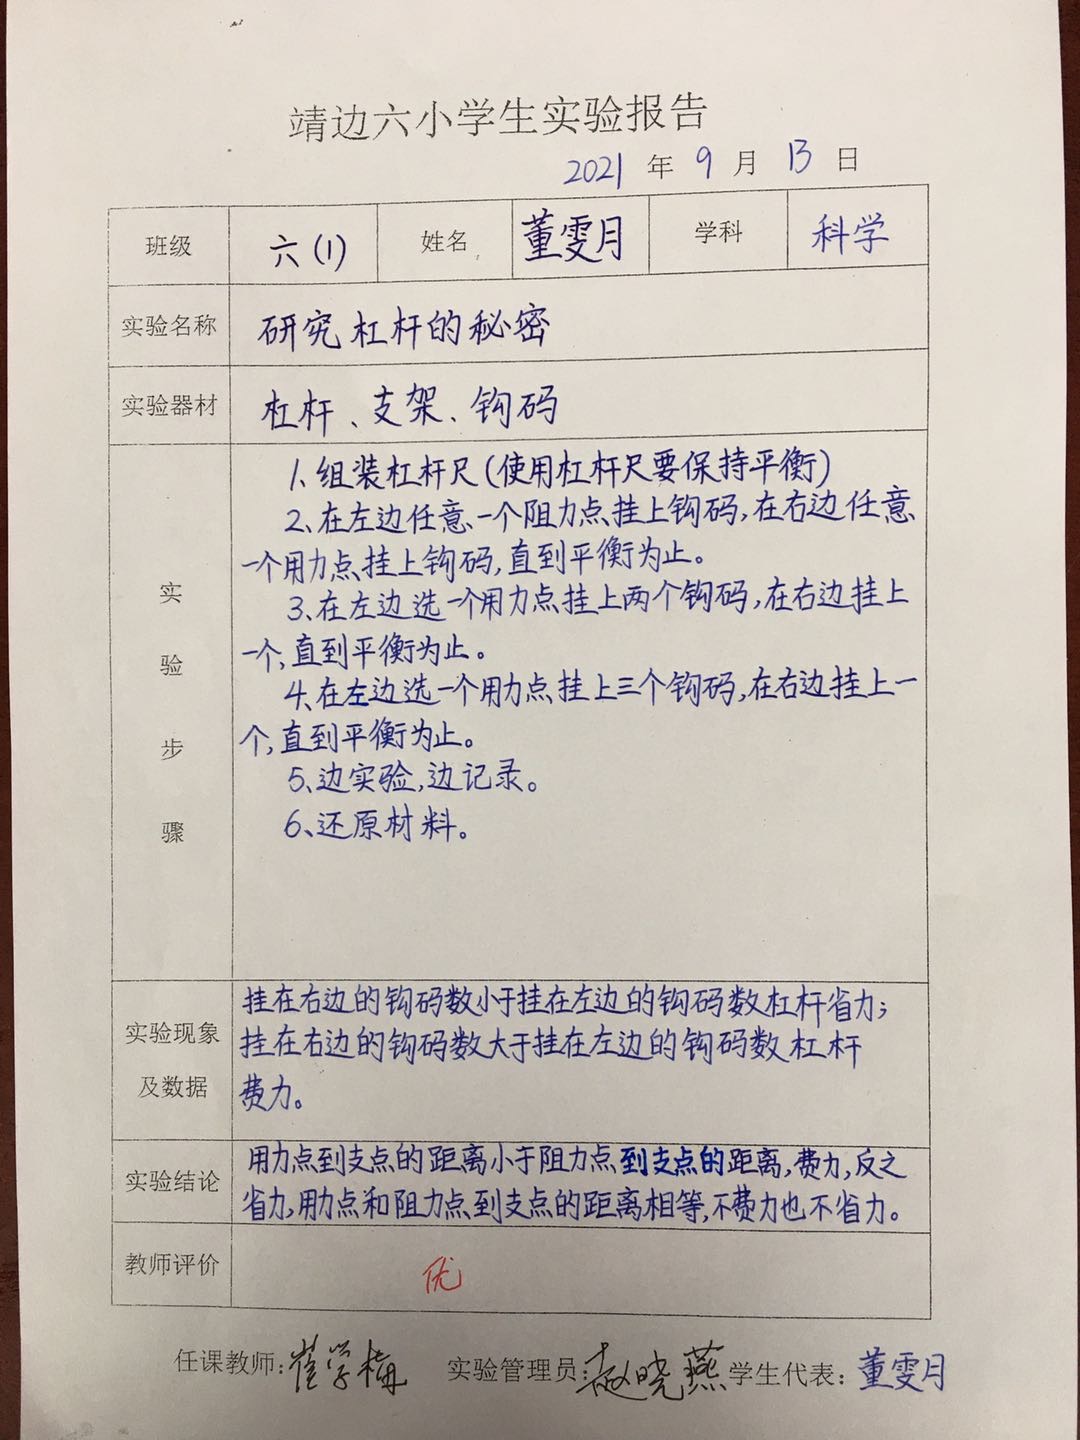 靖边六小学生实验报告
2021 年 9 月 13 日
班级 六(1) 姓名 董雯月 学科 科学
实验名称 研究杠杆的秘密
实验器材 杠杆、支架、钩码
实验步骤
1、组装杠杆尺(使用杠杆尺要保持平衡)
2、在左边任意一个阻力点挂上钩码,在右边任意
一个用力点挂上钩码,直到平衡为止。
3、在左边选一个用力点挂上两个钩码,在右边挂上
一个,直到平衡为止。
4、在左边选一个用力点挂上三个钩码,在右边挂上一
个,直到平衡为止。
5、边实验,边记录。
6、还原材料。
实验现象
及数据
挂在右边的钩码数小于挂在左边的钩码数杠杆省力;
挂在右边的钩码数大于挂在左边的钩码数杠杆
费力。
实验结论
用力点到支点的距离小于阻力点到支点的距离,费力,反之
省力,用力点和阻力点到支点的距离相等,不费力也不省力。
教师评价 优
任课教师:崔学梅 实验管理员:赵晓燕 学生代表:董雯月